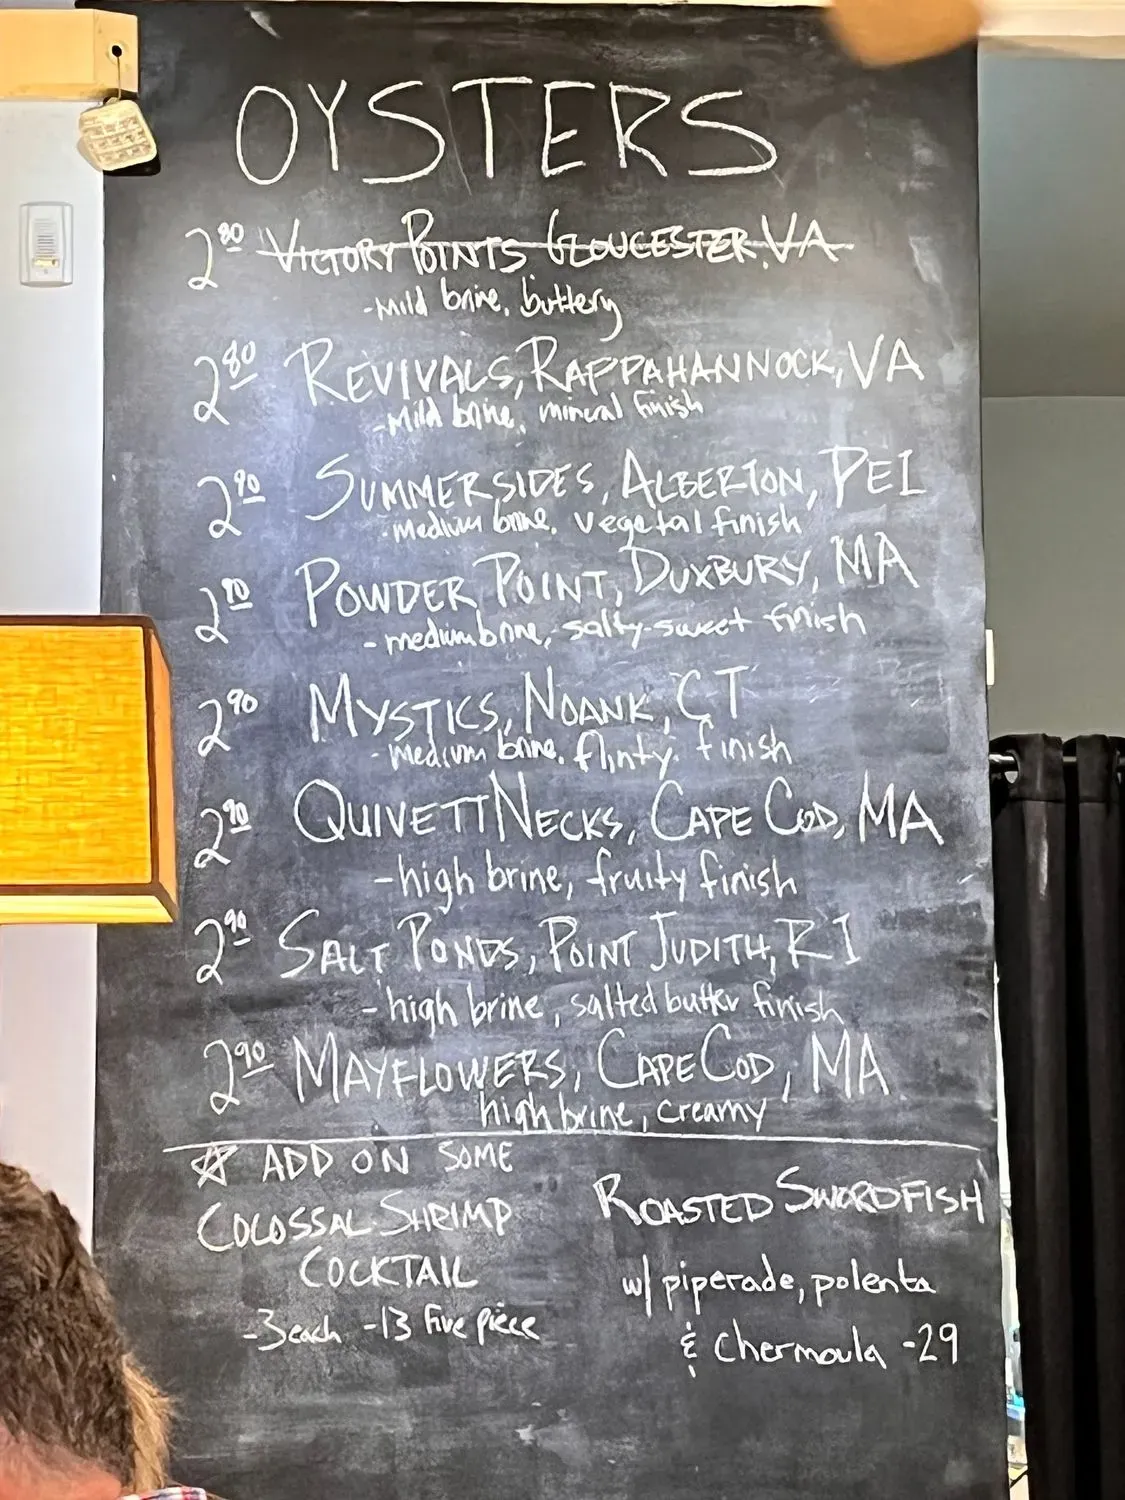 OYSTERS
2 80 VICTORY POINTS GLOUCESTER, VA
-Mild brine, buttery
2 80 REVIVALS, RAPPAHANNOCK, VA
-Mild brine, mineral finish
2 90 SUMMERSIDES, ALBERTON, PEI
-medium brine, vegetal finish
2 90 POWDER POINT, DUXBURY, MA
-medium brine, salty-sweet finish
2 90 MYSTICS, NOANK, CT
-medium brine, flinty finish
2 90 QUIVETT NECKS, CAPE COD, MA
-high brine, fruity finish
2 90 SALT PONDS, POINT JUDITH, RI
-high brine, salted butter finish
2 90 MAYFLOWERS, CAPE COD, MA
high brine, creamy
☆ ADD ON SOME
COLOSSAL SHRIMP
COCKTAIL
-3 each -13 five piece
ROASTED SWORDFISH
w/ piperade, polenta
& Chermoula -29